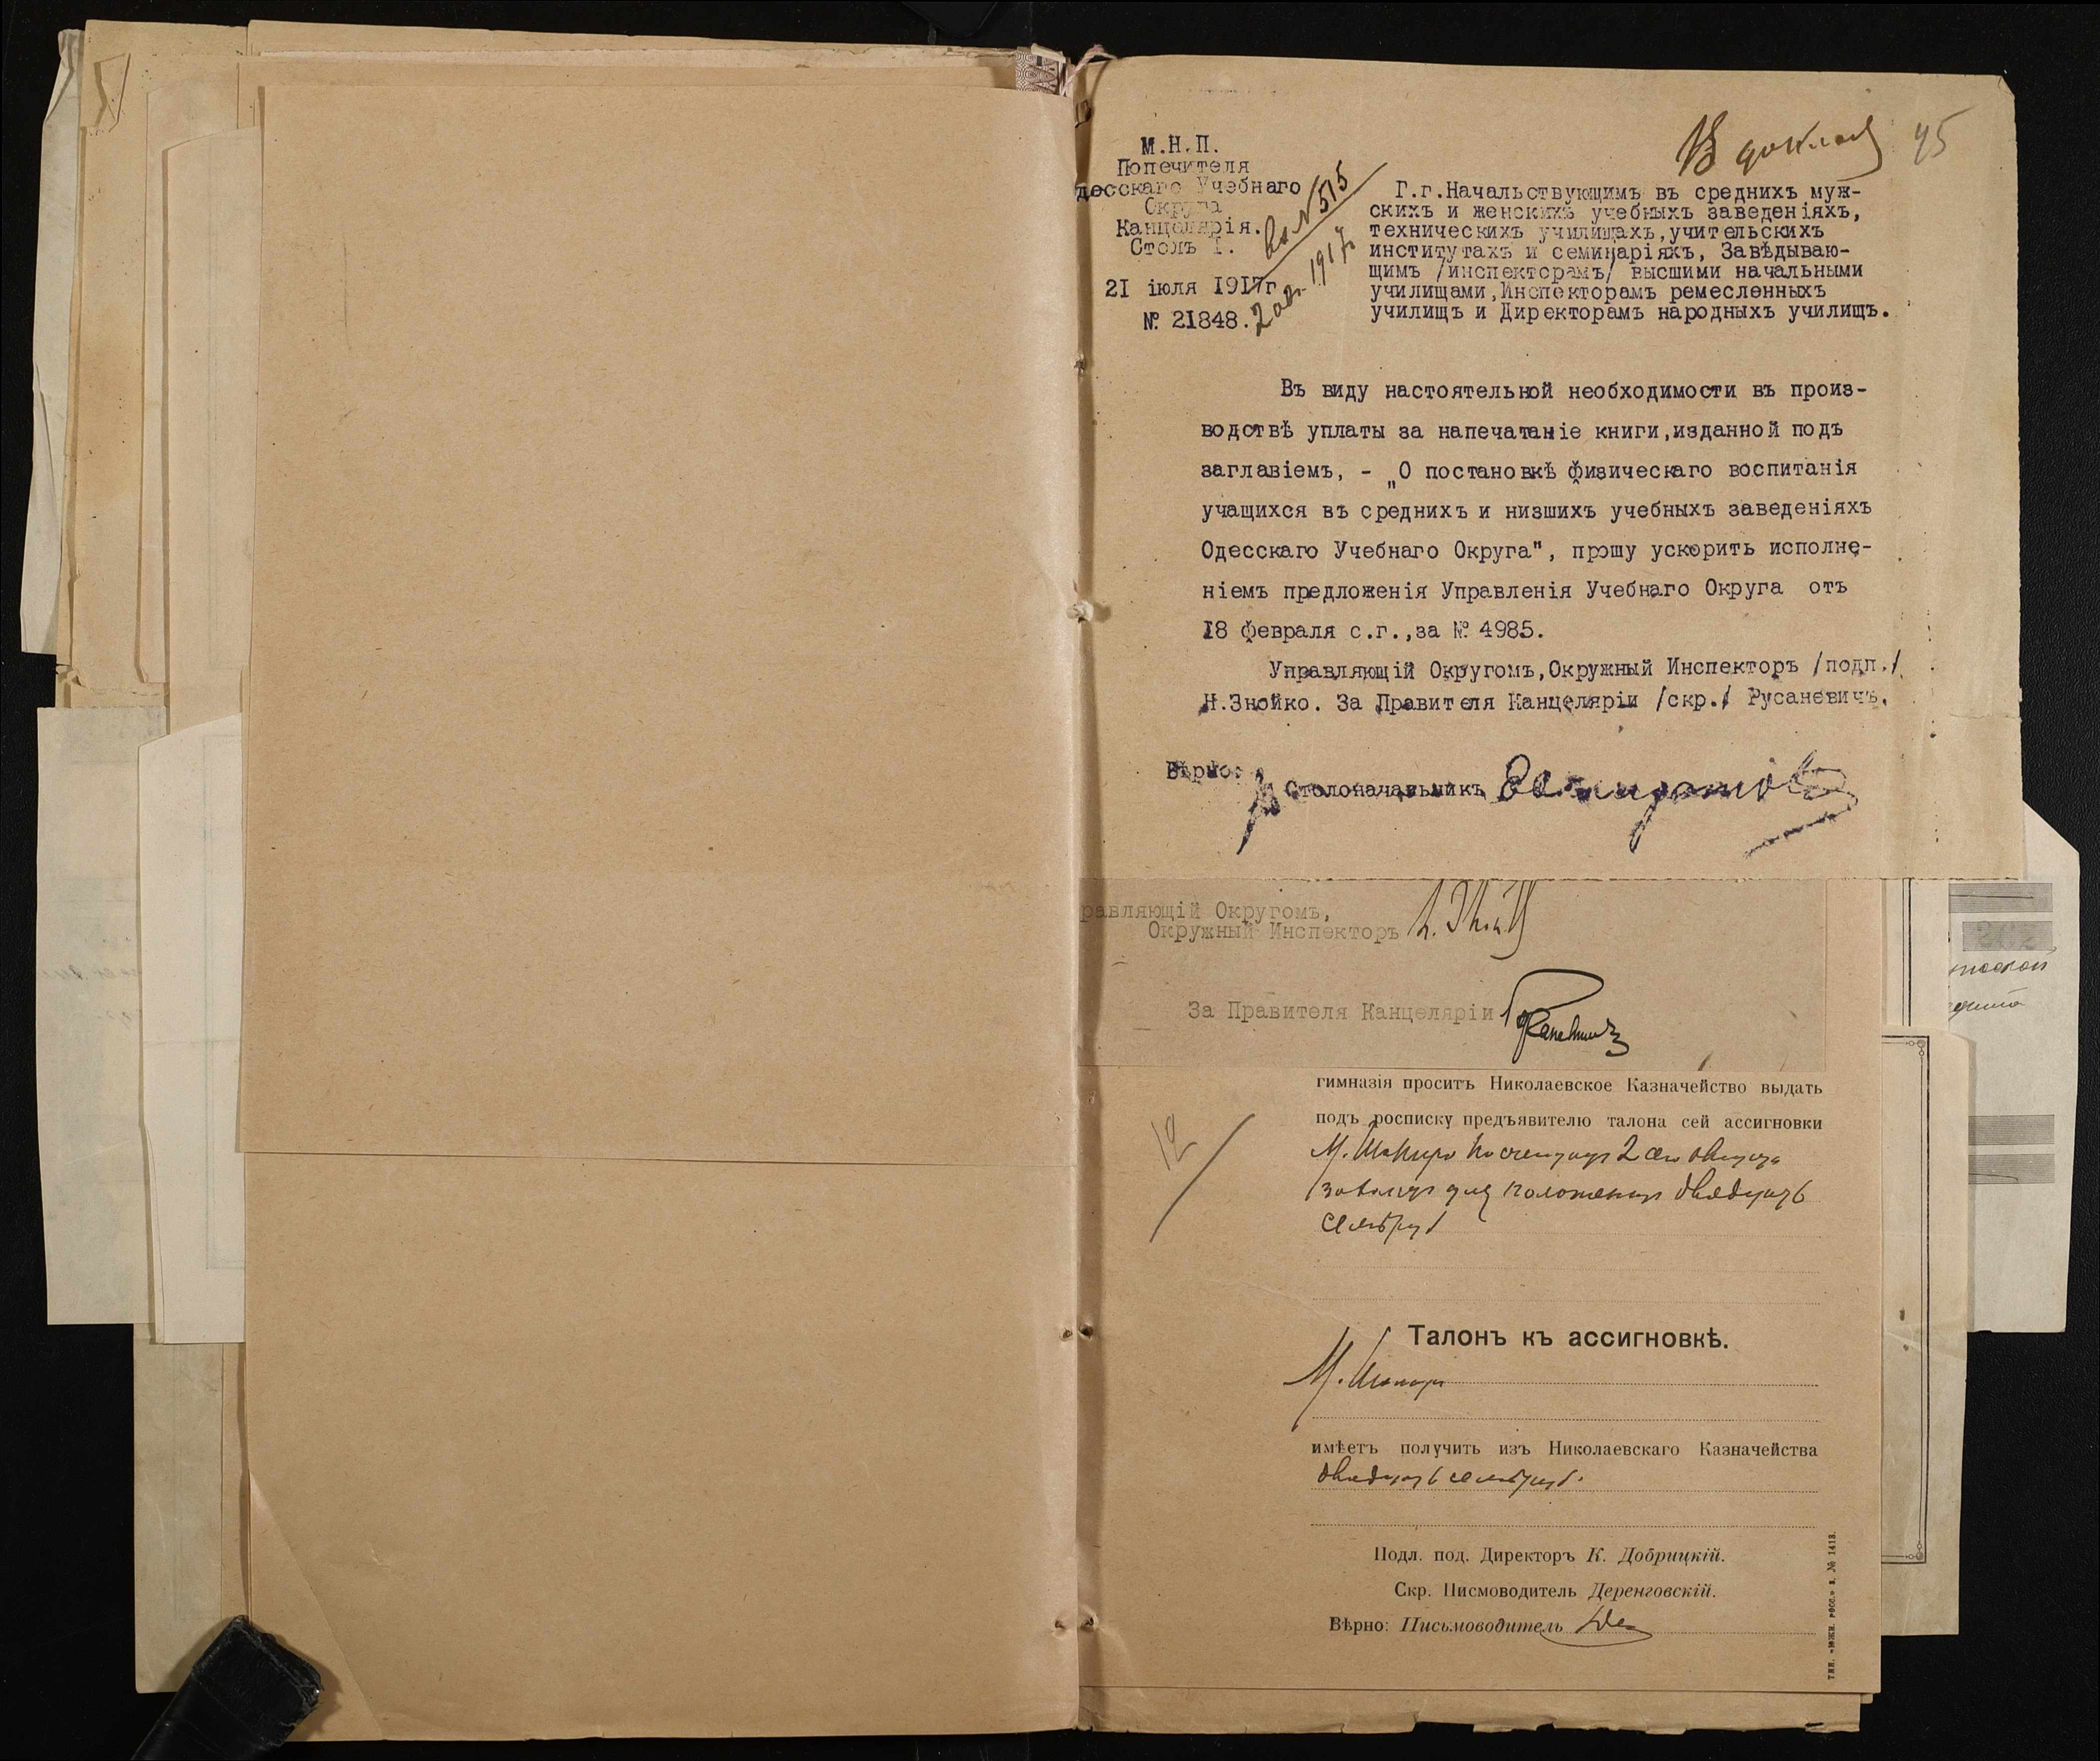 45
М.Н.П.
Попечителя
десскаго Учебнаго
Округа
Канцелярія.
Столъ I.
21 іюля 1917г
№ 21848.
Вх. № 515
2 авг. 1917 г.
Г.г.Начальствующимъ въ среднихъ муж-
скихъ и женскихъ учебныхъ заведеніяхъ,
техническихъ училищахъ,учительскихъ
институтахъ и семинаріяхъ, Завѣдываю-
щимъ /инспекторамъ/ высшими начальными
училищами,Инспекторамъ ремесленныхъ
училищъ и Директорамъ народныхъ училищъ.
Въ виду настоятельной необходимости въ произ-
водствѣ уплаты за напечатаніе книги,изданной подъ
заглавіемъ, - „О постановкѣ физическаго воспитанія
учащихся въ среднихъ и низшихъ учебныхъ заведеніяхъ
Одесскаго Учебнаго Округа", прошу ускорить исполне-
ніемъ предложенія Управленія Учебнаго Округа отъ
18 февраля с.г.,за № 4985.
Управляющій Округомъ,Окружный Инспекторъ /подп./
Н.Знойко. За Правителя Канцеляріи /скр./ Русаневичъ.
Вѣрно:
Столоначальникъ
равляющій Округомъ,
Окружный Инспекторъ
За Правителя Канцеляріи
гимназія проситъ Николаевское Казначейство выдать
подъ росписку предъявителю талона сей ассигновки
12
Талонъ къ ассигновкѣ.
имѣетъ получить изъ Николаевскаго Казначейства
Подл. под. Директоръ К. Добрицкій.
Скр. Письмоводитель Деренговскій.
Вѣрно: Письмоводитель
тип. «южн. росс.» з. № 1413.